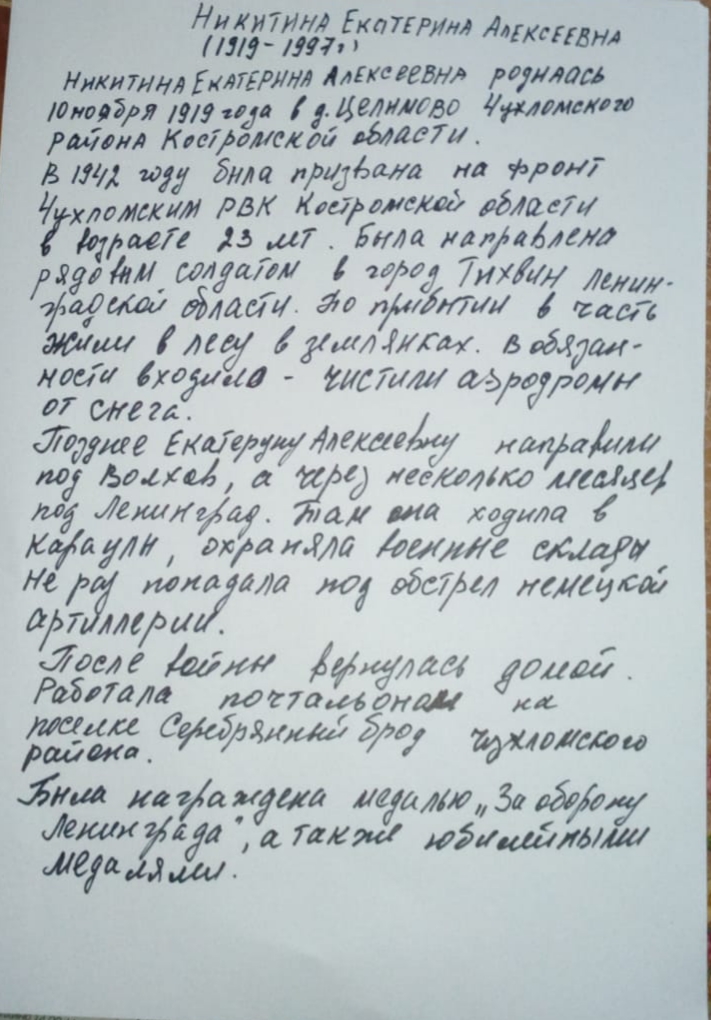 Никитина Екатерина Алексеевна
(1919-1997г)
Никитина Екатерина Алексеевна родилась
10 ноября 1919 года в д. Целимово Чухломского
района Костромской области.
В 1942 году была призвана на фронт
Чухломским РВК Костромской области
в возрасте 23 лет. Была направлена
рядовым солдатом в город Тихвин Ленин-
градской области. По прибытии в часть
жили в лесу в землянках. В обязан-
ности входило - чистили аэродромы
от снега.
Позднее Екатерину Алексеевну направили
под Волхов, а через несколько месяцев
под Ленинград. Там она ходила в
караулы, охраняла военные склады
не раз попадала под обстрел немецкой
артиллерии.
После войны вернулась домой.
Работала почтальоном на
поселке Серебрянный брод Чухломского
района.
Была награждена медалью „За оборону
Ленинграда", а также юбилейными
медалями.